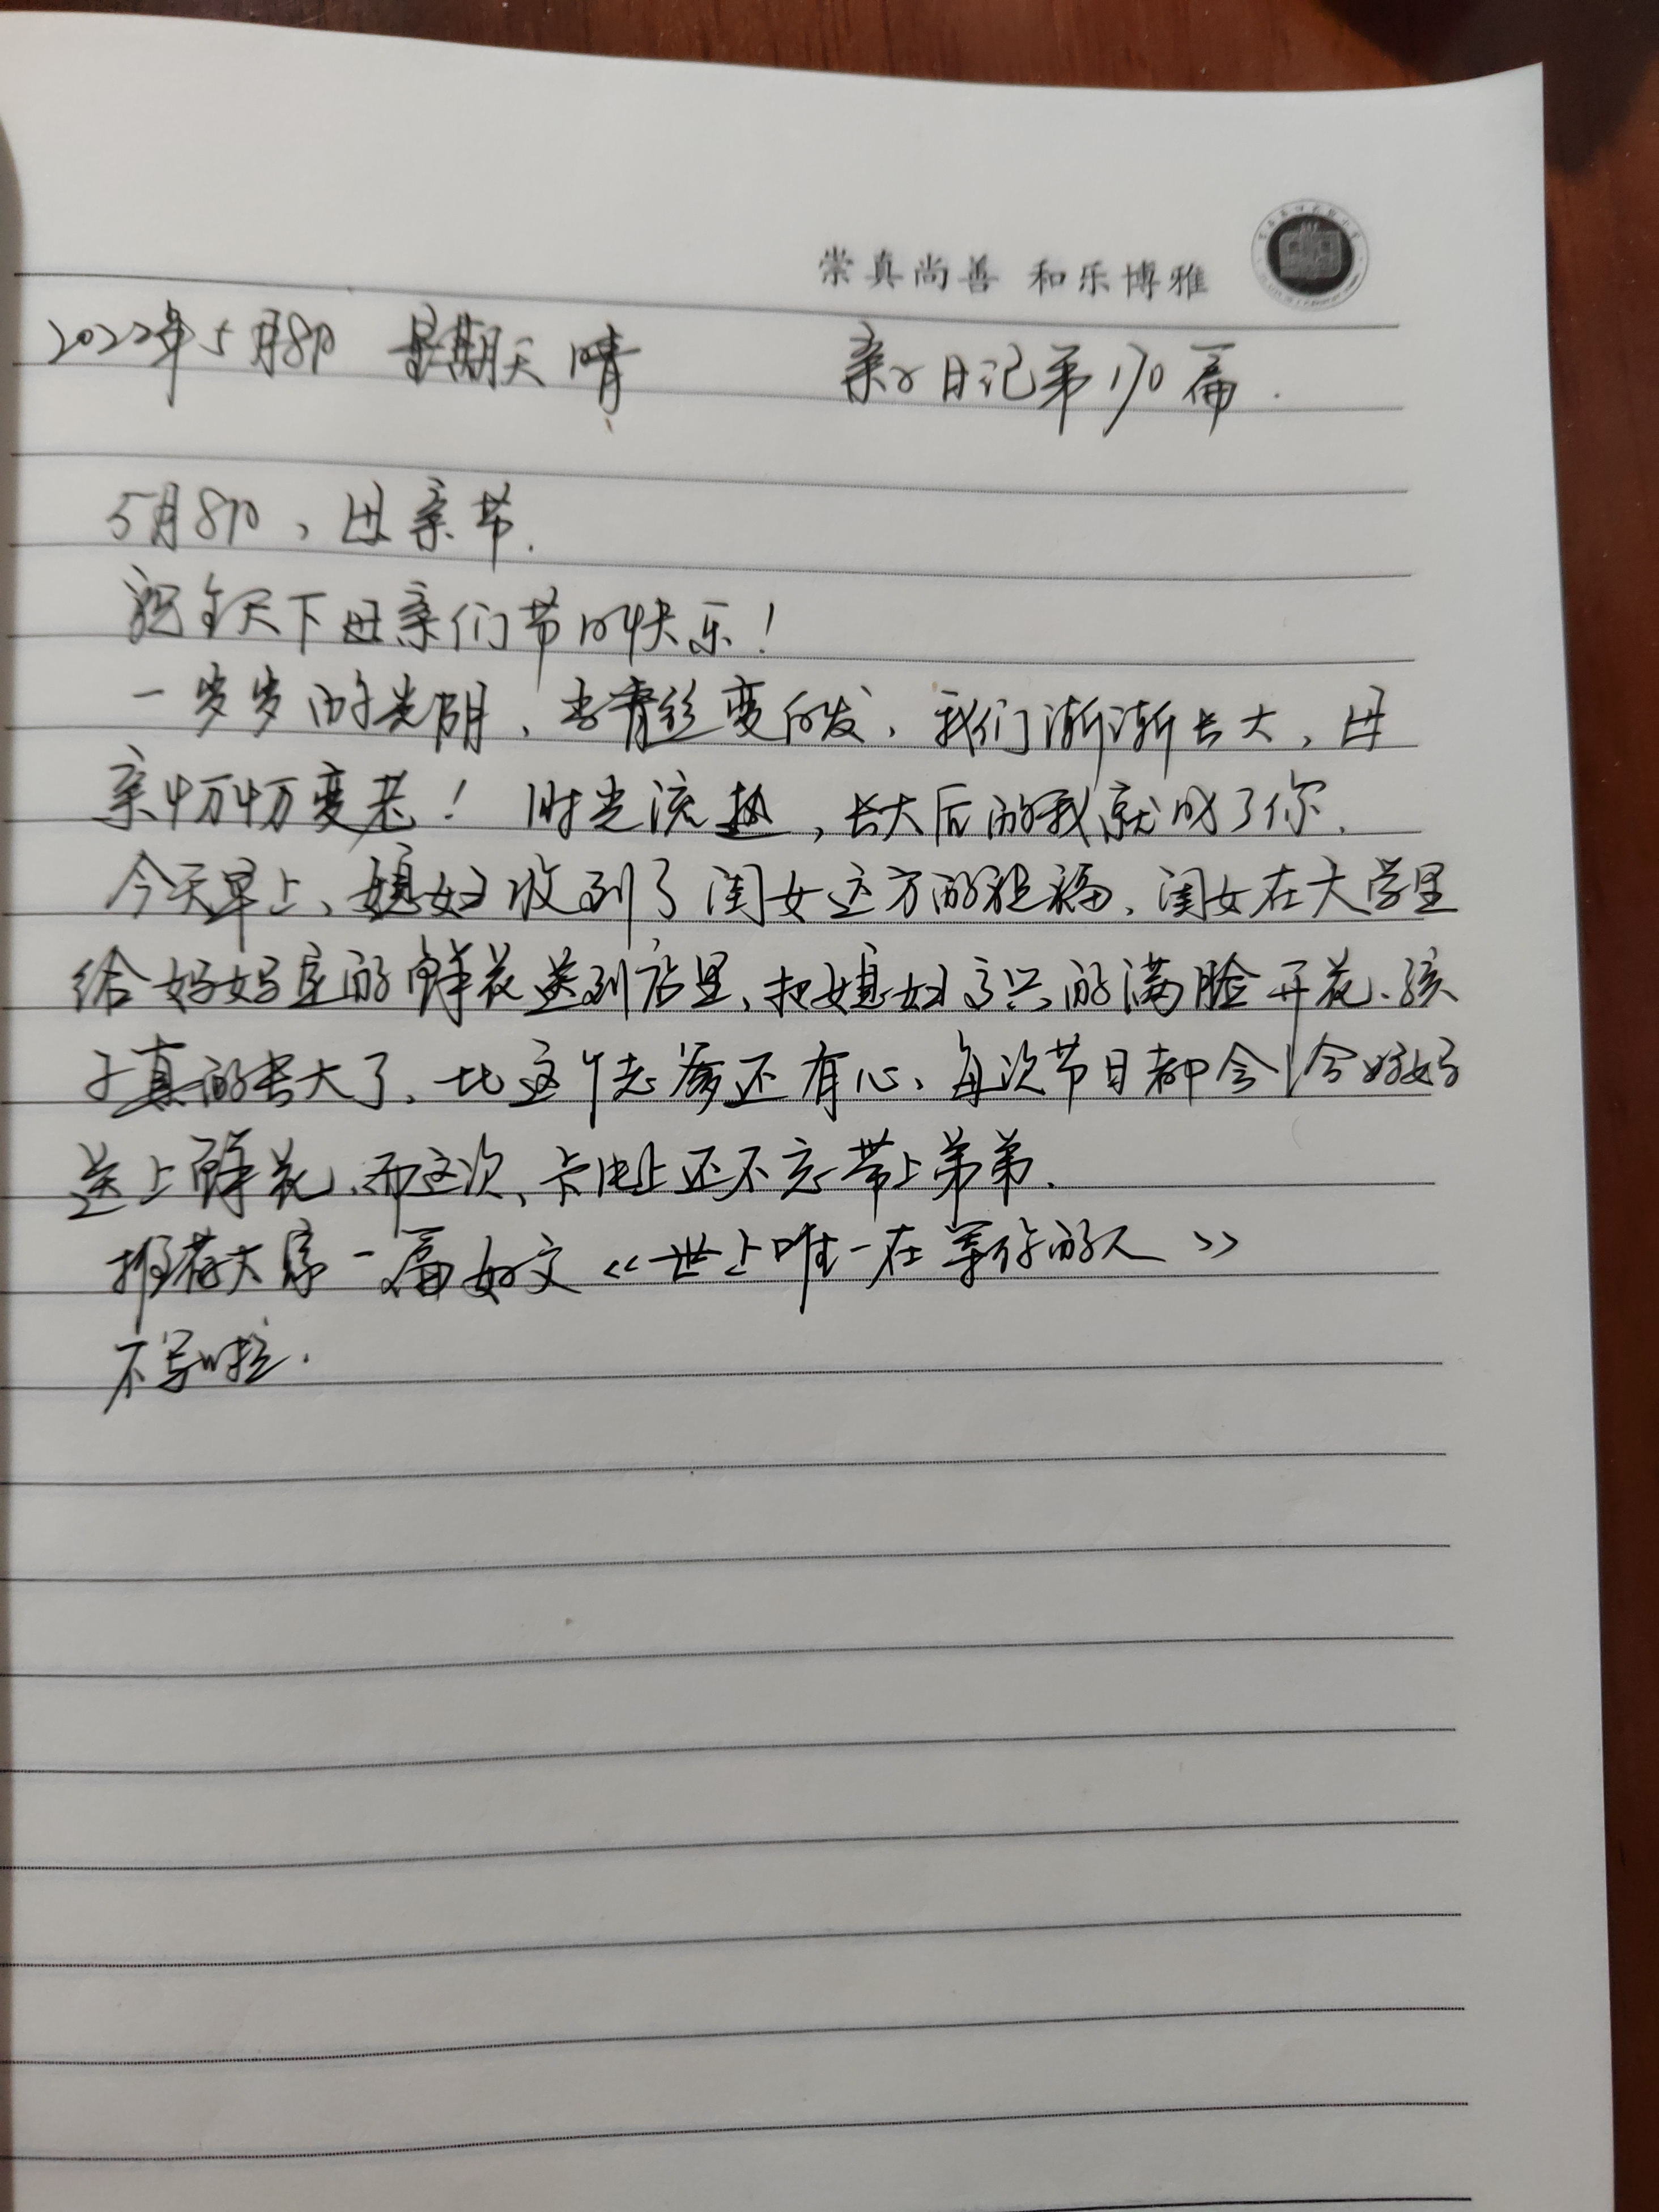 崇真尚善 和乐博雅
2022年5月8日 星期天 晴 亲子日记第170篇.
5月8日,母亲节.
祝全天下母亲们节日快乐!
一岁岁的光阴,青丝变白发,我们渐渐长大,母
亲慢慢变老!时光流逝,长大后的我就成了你.
今天早上,媳妇收到了闺女远方的祝福,闺女在大学里
给妈妈定的鲜花送到店里,把媳妇高兴的满脸开花,孩
子真的长大了,比这个老爹还有心,每次节日都会给妈妈
送上鲜花,而这次,卡片上还不忘带上弟弟.
推荐大家一篇好文《世上唯一在等你的人》
不写啦.